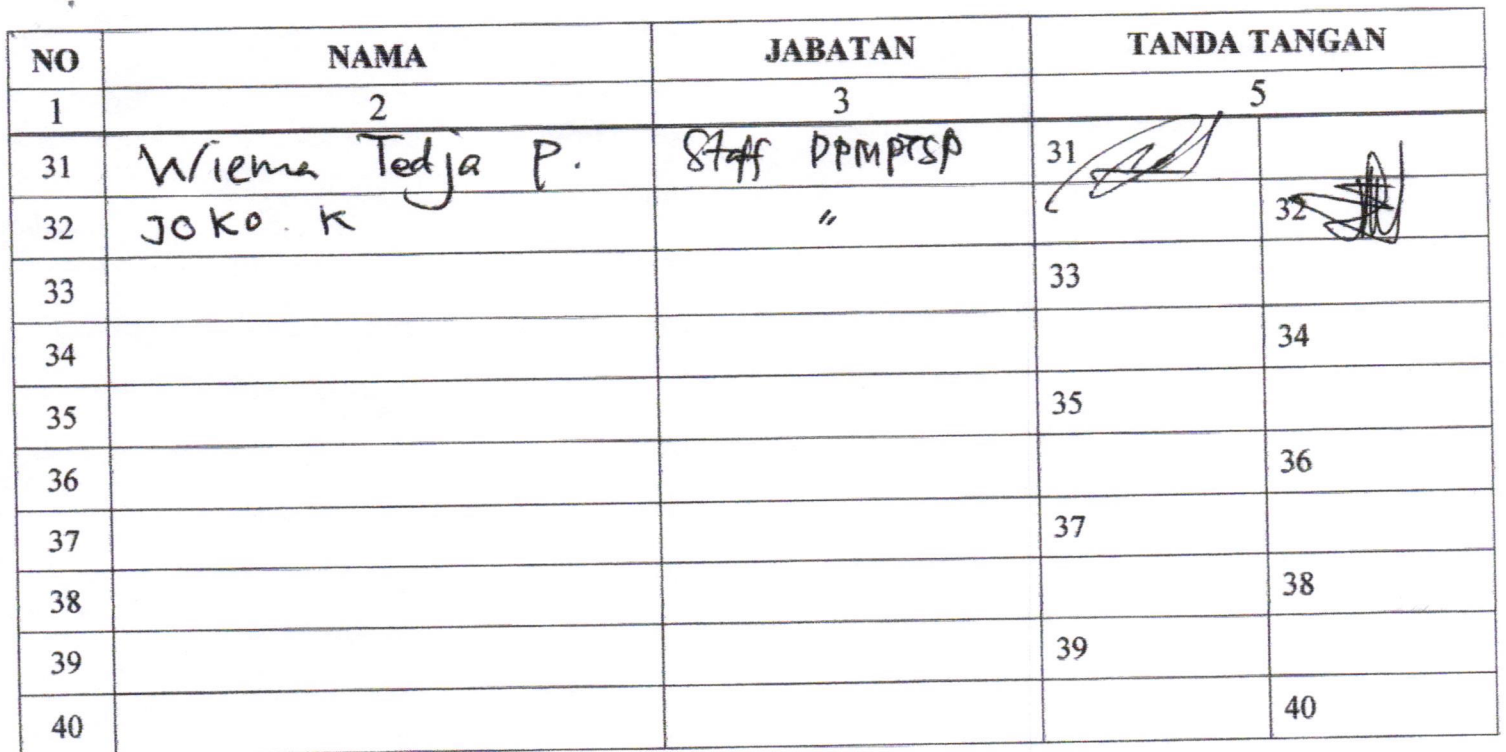 NO NAMA JABATAN TANDA TANGAN
1 2 3 5
31 Wiema Tedja P. Staff DPMPTSP 31
32 JOKO. K " 32
33 33
34 34
35 35
36 36
37 37
38 38
39 39
40 40